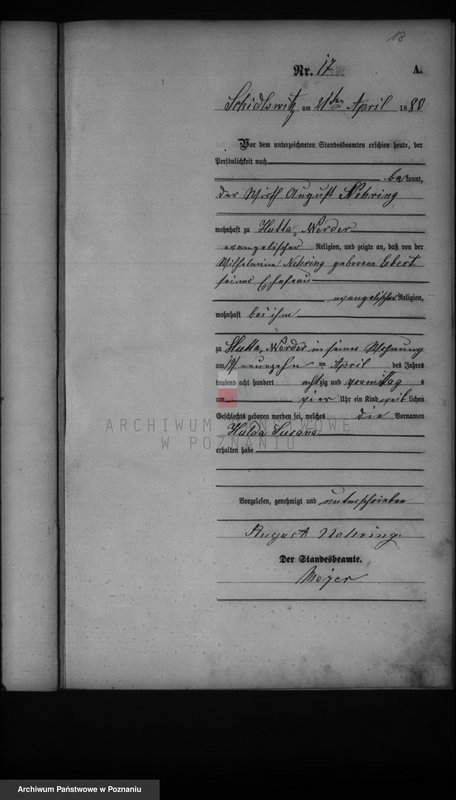 18
Nr. 17
A.
Schidlowitz am 21ten April 1880
Vor dem unterzeichneten Standesbeamten erschien heute, der
Persönlichkeit nach
bekannt,
der Wirth August Nehring
wohnhaft zu Hutta Werder
evangelischer Religion, und zeigte an, daß von der
Wilhelmine Nehring geborene Ebert
seiner Ehefrau
evangelischer Religion,
wohnhaft bei ihm
zu Hutta Werder in seiner Wohnung
am neunzehn = April des Jahres
tausend acht hundert achtzig und vormittags
um vier Uhr ein Kind weiblichen
Geschlechts geboren worden sei, welches die Vornamen
ARCHIWUM PAŃSTWOWE
W POZNANIU
Hulda Susana
erhalten habe
Vorgelesen, genehmigt und unterschrieben
August Nehring
Der Standesbeamte.
Meyer
Archiwum Państwowe w Poznaniu